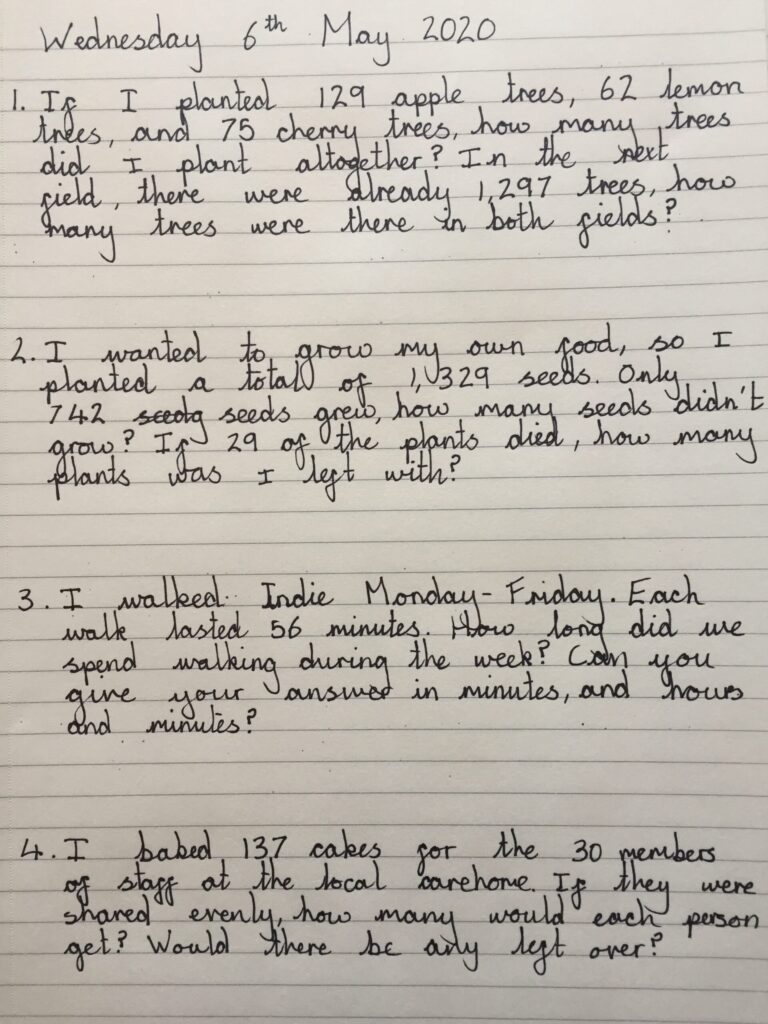 Wednesday 6th May 2020
1. If I planted 129 apple trees, 62 lemon
trees, and 75 cherry trees, how many trees
did I plant altogether? In the next
field, there were already 1,297 trees, how
many trees were there in both fields?
2. I wanted to grow my own food, so I
planted a total of 1,329 seeds. Only
742 seeds grew, how many seeds didn't
grow? If 29 of the plants died, how many
plants was I left with?
3. I walked Indie Monday - Friday. Each
walk lasted 56 minutes. How long did we
spend walking during the week? Can you
give your answer in minutes, and hours
and minutes?
4. I baked 137 cakes for the 30 members
of staff at the local carehome. If they were
shared evenly, how many would each person
get? Would there be any left over?